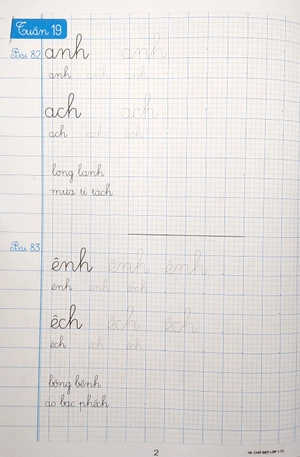 Tuần 19
Bài 82 anh anh
anh anh anh
ach ach
ach ach ach
long lanh
mưa rả rách
Bài 83
ênh ênh ênh
ênh ênh ênh
êch êch êch
êch êch êch
bồng bênh
áo bạc phếch
2